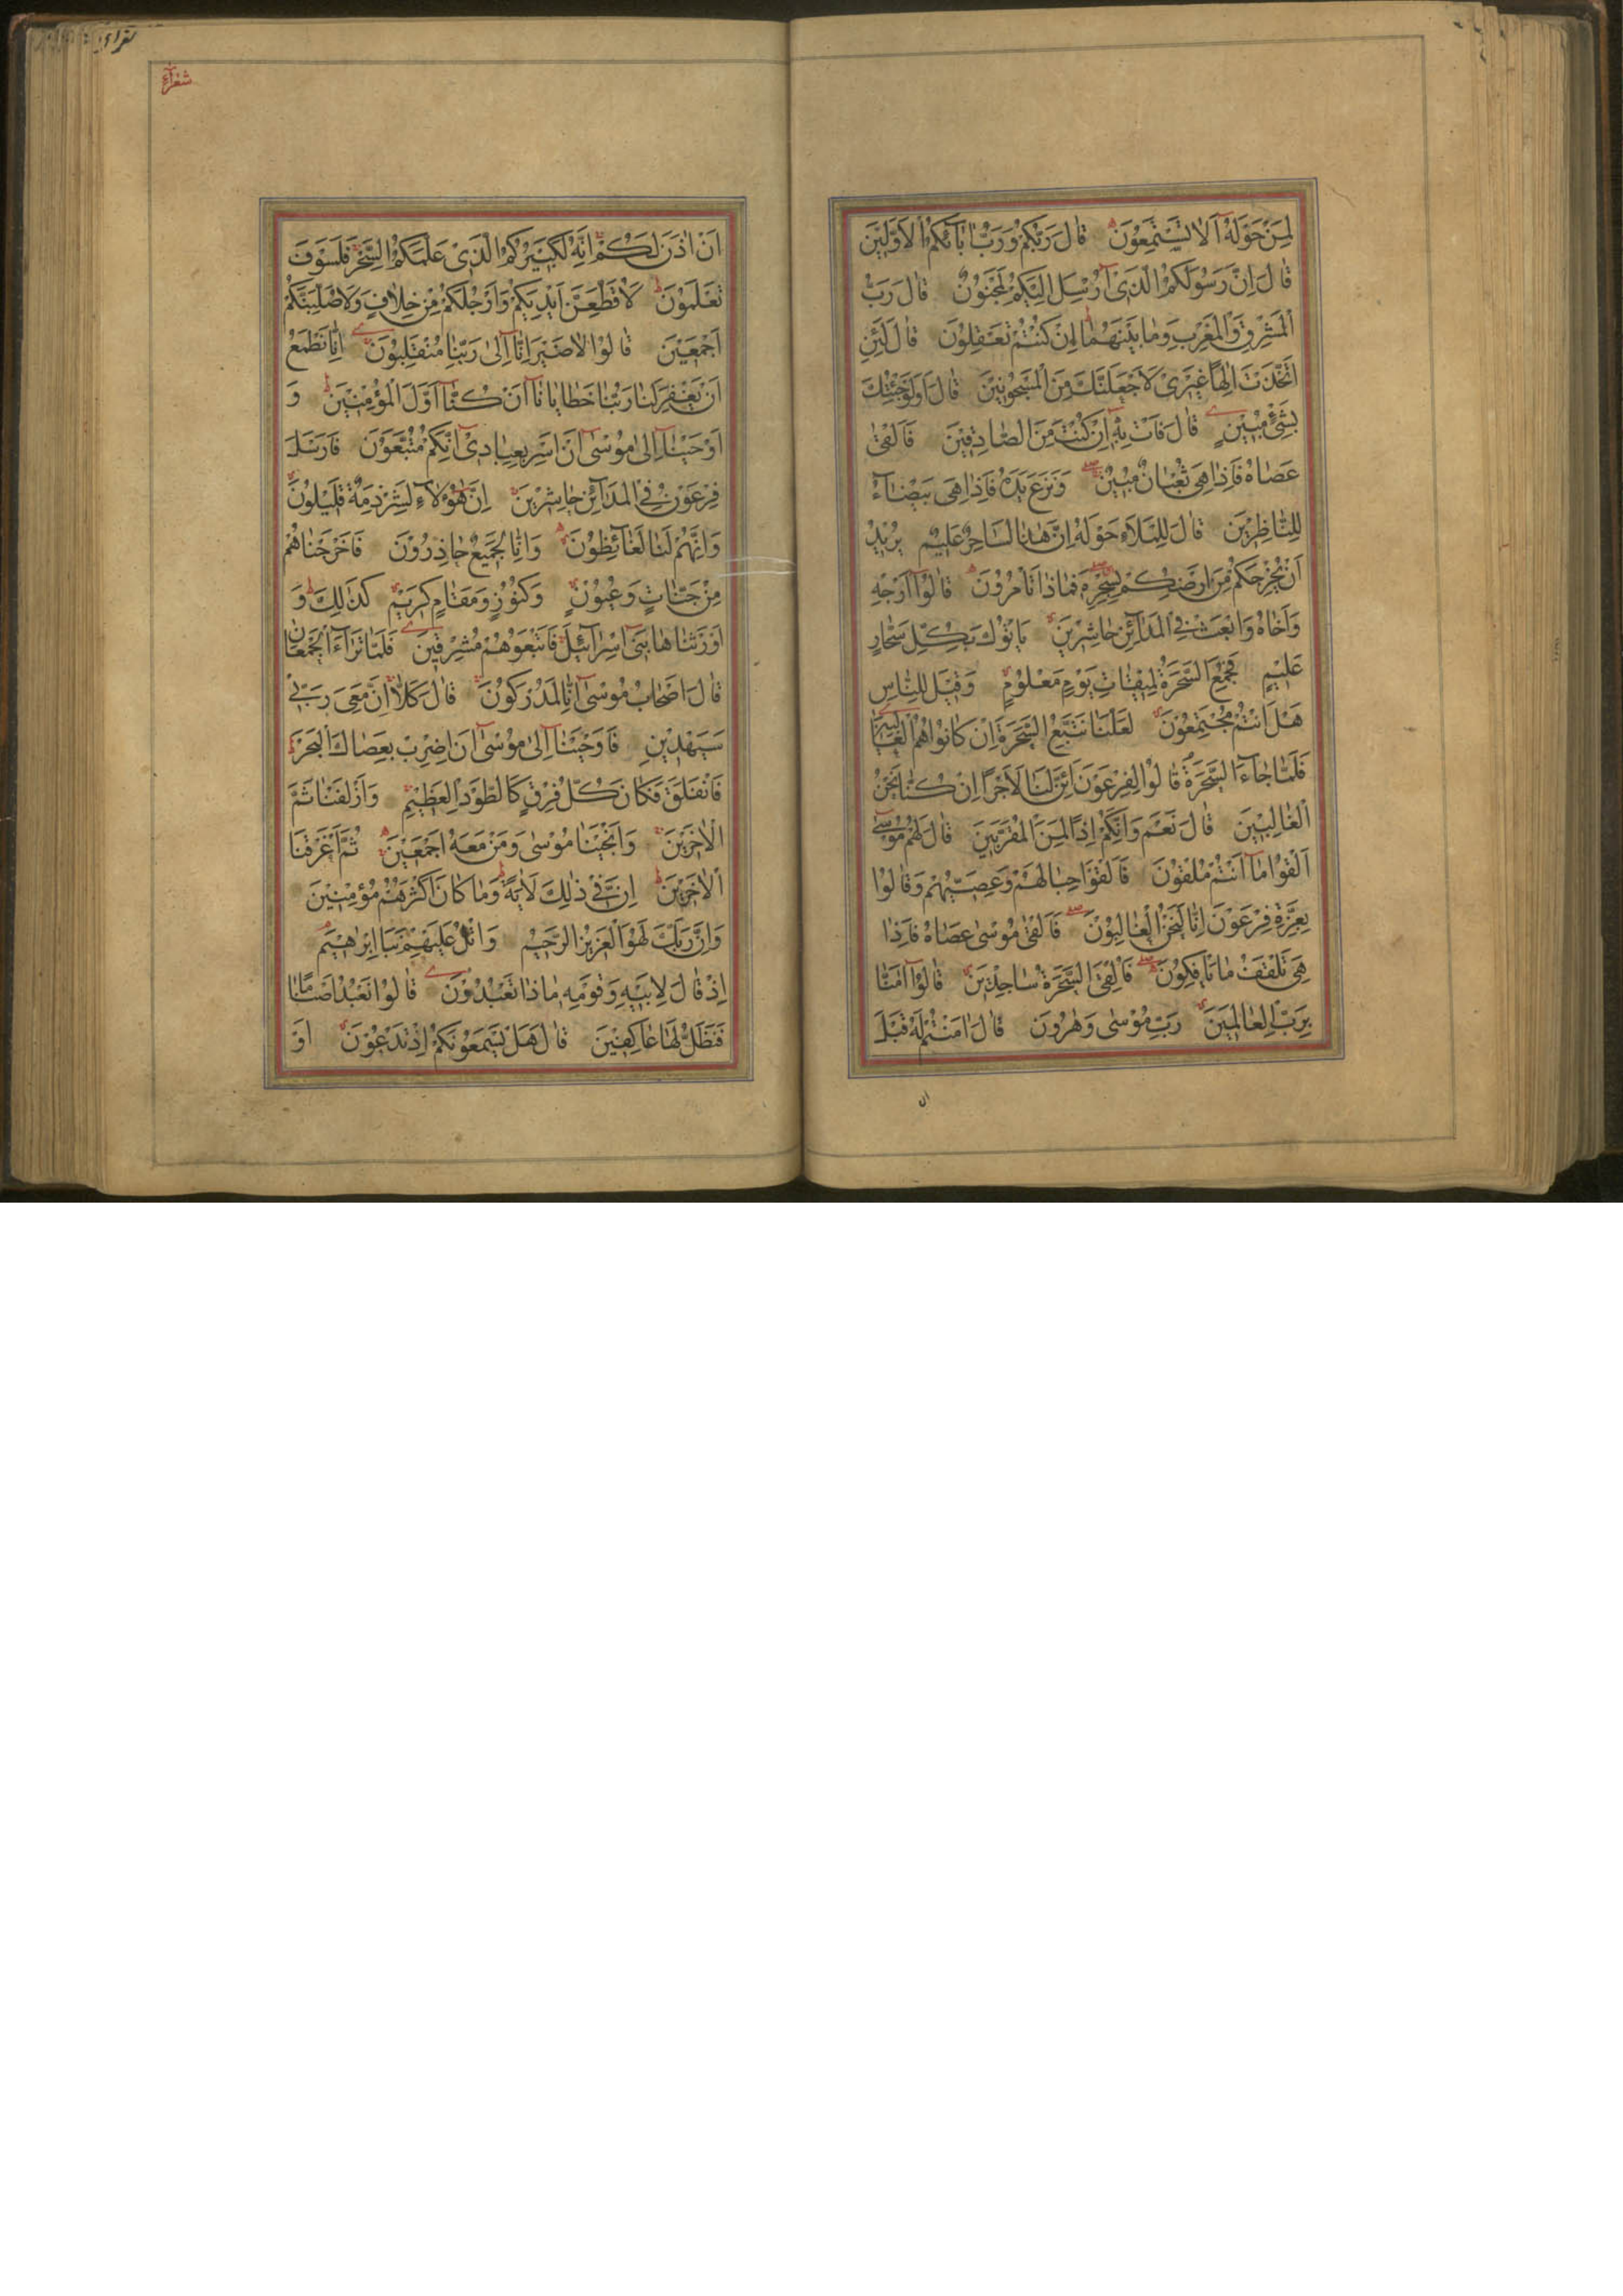 لِمَنْ حَوْلَهُ اَلَا تَسْتَمِعُوْنَ قَالَ رَبُّكُمْ وَرَبُّ اٰبَآئِكُمُ الْاَوَّلِيْنَ
قَالَ اِنَّ رَسُوْلَكُمُ الَّذِىْ اُرْسِلَ اِلَيْكُمْ لَمَجْنُوْنٌ قَالَ رَبُّ
الْمَشْرِقِ وَالْمَغْرِبِ وَمَا بَيْنَهُمَا اِنْ كُنْتُمْ تَعْقِلُوْنَ قَالَ لَئِنِ
اتَّخَذْتَ اِلٰهًا غَيْرِىْ لَاَجْعَلَنَّكَ مِنَ الْمَسْجُوْنِيْنَ قَالَ اَوَلَوْ جِئْتُكَ
بِشَىْءٍ مُبِيْنٍ قَالَ فَاْتِ بِهٖ اِنْ كُنْتَ مِنَ الصَّادِقِيْنَ فَاَلْقٰى
عَصَاهُ فَاِذَا هِىَ ثُعْبَانٌ مُبِيْنٌ وَنَزَعَ يَدَهُ فَاِذَا هِىَ بَيْضَآءُ
لِلنَّاظِرِيْنَ قَالَ لِلْمَلَاِ حَوْلَهُ اِنَّ هٰذَا لَسَاحِرٌ عَلِيْمٌ يُرِيْدُ
اَنْ يُخْرِجَكُمْ مِنْ اَرْضِكُمْ بِسِحْرِهٖ فَمَاذَا تَاْمُرُوْنَ قَالُوْا اَرْجِهْ
وَاَخَاهُ وَابْعَثْ فِى الْمَدَآئِنِ حَاشِرِيْنَ يَاْتُوْكَ بِكُلِّ سَحَّارٍ
عَلِيْمٍ فَجُمِعَ السَّحَرَةُ لِمِيْقَاتِ يَوْمٍ مَعْلُوْمٍ وَقِيْلَ لِلنَّاسِ
هَلْ اَنْتُمْ مُجْتَمِعُوْنَ لَعَلَّنَا نَتَّبِعُ السَّحَرَةَ اِنْ كَانُوْا هُمُ الْغَالِبِيْنَ
فَلَمَّا جَآءَ السَّحَرَةُ قَالُوْا لِفِرْعَوْنَ اَئِنَّ لَنَا لَاَجْرًا اِنْ كُنَّا نَحْنُ
الْغَالِبِيْنَ قَالَ نَعَمْ وَاِنَّكُمْ اِذًا لَمِنَ الْمُقَرَّبِيْنَ قَالَ لَهُمْ مُوْسٰى
اَلْقُوْا مَا اَنْتُمْ مُلْقُوْنَ فَاَلْقَوْا حِبَالَهُمْ وَعِصِيَّهُمْ وَقَالُوْا
بِعِزَّةِ فِرْعَوْنَ اِنَّا لَنَحْنُ الْغَالِبُوْنَ فَاَلْقٰى مُوْسٰى عَصَاهُ فَاِذَا
هِىَ تَلْقَفُ مَا يَاْفِكُوْنَ فَاُلْقِىَ السَّحَرَةُ سَاجِدِيْنَ قَالُوْا اٰمَنَّا
بِرَبِّ الْعَالَمِيْنَ رَبِّ مُوْسٰى وَهٰرُوْنَ قَالَ اٰمَنْتُمْ لَهُ قَبْلَ
ان
شعرآء
اَنْ اٰذَنَ لَكُمْ اِنَّهُ لَكَبِيْرُكُمُ الَّذِىْ عَلَّمَكُمُ السِّحْرَ فَلَسَوْفَ
تَعْلَمُوْنَ لَاُقَطِّعَنَّ اَيْدِيَكُمْ وَاَرْجُلَكُمْ مِنْ خِلَافٍ وَلَاُصَلِّبَنَّكُمْ
اَجْمَعِيْنَ قَالُوْا لَا ضَيْرَ اِنَّا اِلٰى رَبِّنَا مُنْقَلِبُوْنَ اِنَّا نَطْمَعُ
اَنْ يَغْفِرَ لَنَا رَبُّنَا خَطَايَانَا اَنْ كُنَّا اَوَّلَ الْمُؤْمِنِيْنَ وَ
اَوْحَيْنَا اِلٰى مُوْسٰى اَنْ اَسْرِ بِعِبَادِىْ اِنَّكُمْ مُتَّبَعُوْنَ فَاَرْسَلَ
فِرْعَوْنُ فِى الْمَدَآئِنِ حَاشِرِيْنَ اِنَّ هٰؤُلَآءِ لَشِرْذِمَةٌ قَلِيْلُوْنَ
وَاِنَّهُمْ لَنَا لَغَآئِظُوْنَ وَاِنَّا لَجَمِيْعٌ حَاذِرُوْنَ فَاَخْرَجْنَاهُمْ
مِنْ جَنَّاتٍ وَعُيُوْنٍ وَكُنُوْزٍ وَمَقَامٍ كَرِيْمٍ كَذٰلِكَ وَ
اَوْرَثْنَاهَا بَنِىْ اِسْرَآئِيْلَ فَاَتْبَعُوْهُمْ مُشْرِقِيْنَ فَلَمَّا تَرَآءَ الْجَمْعَانِ
قَالَ اَصْحَابُ مُوْسٰى اِنَّا لَمُدْرَكُوْنَ قَالَ كَلَّا اِنَّ مَعِىَ رَبِّىْ
سَيَهْدِيْنِ فَاَوْحَيْنَا اِلٰى مُوْسٰى اَنِ اضْرِبْ بِعَصَاكَ الْبَحْرَ
فَانْفَلَقَ فَكَانَ كُلُّ فِرْقٍ كَالطَّوْدِ الْعَظِيْمِ وَاَزْلَفْنَا ثَمَّ
الْاٰخَرِيْنَ وَاَنْجَيْنَا مُوْسٰى وَمَنْ مَعَهُ اَجْمَعِيْنَ ثُمَّ اَغْرَقْنَا
الْاٰخَرِيْنَ اِنَّ فِىْ ذٰلِكَ لَاٰيَةً وَمَا كَانَ اَكْثَرُهُمْ مُؤْمِنِيْنَ
وَاِنَّ رَبَّكَ لَهُوَ الْعَزِيْزُ الرَّحِيْمُ وَاتْلُ عَلَيْهِمْ نَبَاَ اِبْرٰهِيْمَ
اِذْ قَالَ لِاَبِيْهِ وَقَوْمِهٖ مَاذَا تَعْبُدُوْنَ قَالُوْا نَعْبُدُ اَصْنَامًا
فَنَظَلُّ لَهَا عَاكِفِيْنَ قَالَ هَلْ يَسْمَعُوْنَكُمْ اِذْ تَدْعُوْنَ اَوْ